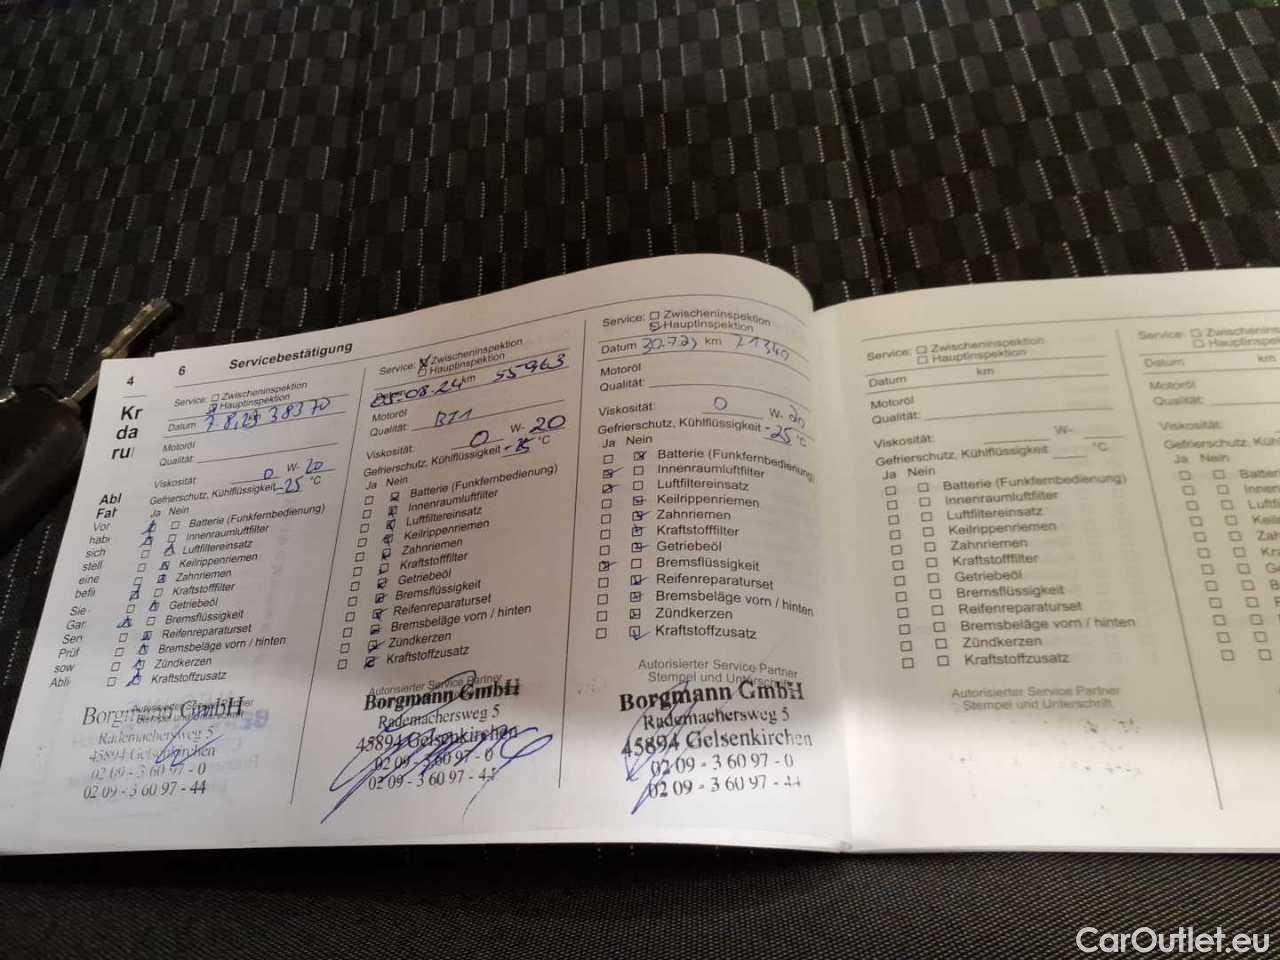 4
Kr
da
ru
Abl
Fah
Vor
habe
sich
stell
eine
befi
Sie
Gar
Sen
Prüf
sow
Abli
6
Servicebestätigung
Service: Zwischeninspektion
Hauptinspektion
Datum 38370
Motoröl
Qualität:
Viskosität: 0 W- 20
Gefrierschutz, Kühlflüssigkeit -25 °C
Ja Nein
Batterie (Funkfernbedienung)
Innenraumluftfilter
Luftfiltereinsatz
Keilrippenriemen
Zahnriemen
Kraftstofffilter
Getriebeöl
Bremsflüssigkeit
Reifenreparaturset
Bremsbeläge vorn / hinten
Zündkerzen
Kraftstoffzusatz
Autorisierter Service Partner
Stempel und Unterschrift
Borgmann GmbH
Rademachersweg 5
45894 Gelsenkirchen
02 09 - 3 60 97 - 0
02 09 - 3 60 97 - 44
Service: Zwischeninspektion
Hauptinspektion
Datum 05.08.24 km 55963
Motoröl
Qualität:
Viskosität: 0 W- 20
Gefrierschutz, Kühlflüssigkeit -25 °C
Ja Nein
Batterie (Funkfernbedienung)
Innenraumluftfilter
Luftfiltereinsatz
Keilrippenriemen
Zahnriemen
Kraftstofffilter
Getriebeöl
Bremsflüssigkeit
Reifenreparaturset
Bremsbeläge vorn / hinten
Zündkerzen
Kraftstoffzusatz
Autorisierter Service Partner
Borgmann GmbH
Rademachersweg 5
45894 Gelsenkirchen
02 09 - 3 60 97 - 0
02 09 - 3 60 97 - 44
Service: Zwischeninspektion
Hauptinspektion
Datum km 71340
Motoröl
Qualität:
Viskosität: 0 W- 20
Gefrierschutz, Kühlflüssigkeit -25 °C
Ja Nein
Batterie (Funkfernbedienung)
Innenraumluftfilter
Luftfiltereinsatz
Keilrippenriemen
Zahnriemen
Kraftstofffilter
Getriebeöl
Bremsflüssigkeit
Reifenreparaturset
Bremsbeläge vorn / hinten
Zündkerzen
Kraftstoffzusatz
Autorisierter Service Partner
Stempel und Unterschrift
Borgmann GmbH
Rademachersweg 5
45894 Gelsenkirchen
02 09 - 3 60 97 - 0
02 09 - 3 60 97 - 44
Service: Zwischeninspektion
Hauptinspektion
Datum km
Motoröl
Qualität:
Viskosität: W-
Gefrierschutz, Kühlflüssigkeit °C
Ja Nein
Batterie (Funkfernbedienung)
Innenraumluftfilter
Luftfiltereinsatz
Keilrippenriemen
Zahnriemen
Kraftstofffilter
Getriebeöl
Bremsflüssigkeit
Reifenreparaturset
Bremsbeläge vorn / hinten
Zündkerzen
Kraftstoffzusatz
Autorisierter Service Partner
Stempel und Unterschrift
Service: Zwischeninspektion
Hauptinspektion
Datum
Motoröl
Qualität:
Viskosität:
Gefrierschutz, Kühlflüssigkeit
Ja Nein
CarOutlet.eu